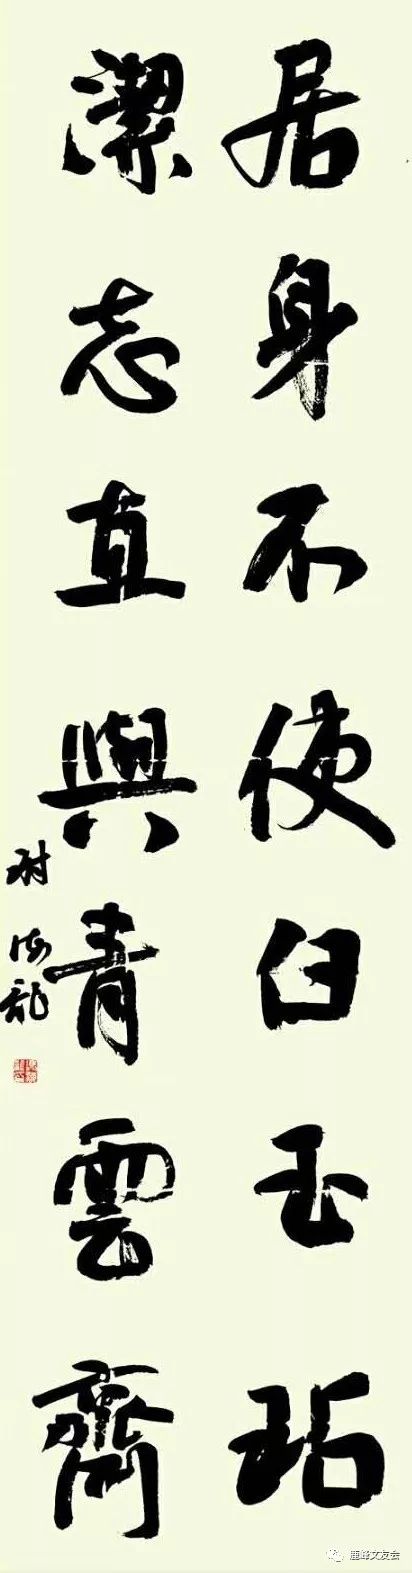 居身不使白玉玷
潔志直與青雲齊
海龍
鹿峰文友会